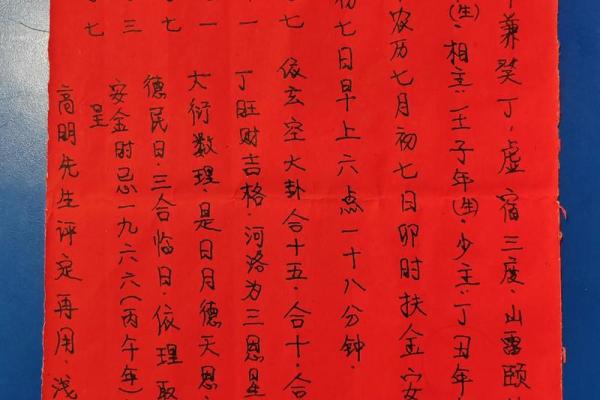 兼癸丁，虚宿三度，山雷颐
(生)·相主:壬子年(生)·少主:丁丑年
农历七月初七日卯时扶金安
初七日早上六点一十八分钟·
七 依玄空大卦合十五·合十·合
一 丁旺财吉格·河洛为三恩星
一 大衍数理·是日月德天恩
七 德民日·三合临日·依理取
三 安金时忌一九六六(丙午年)
七 呈
高明先生评定再用·浅